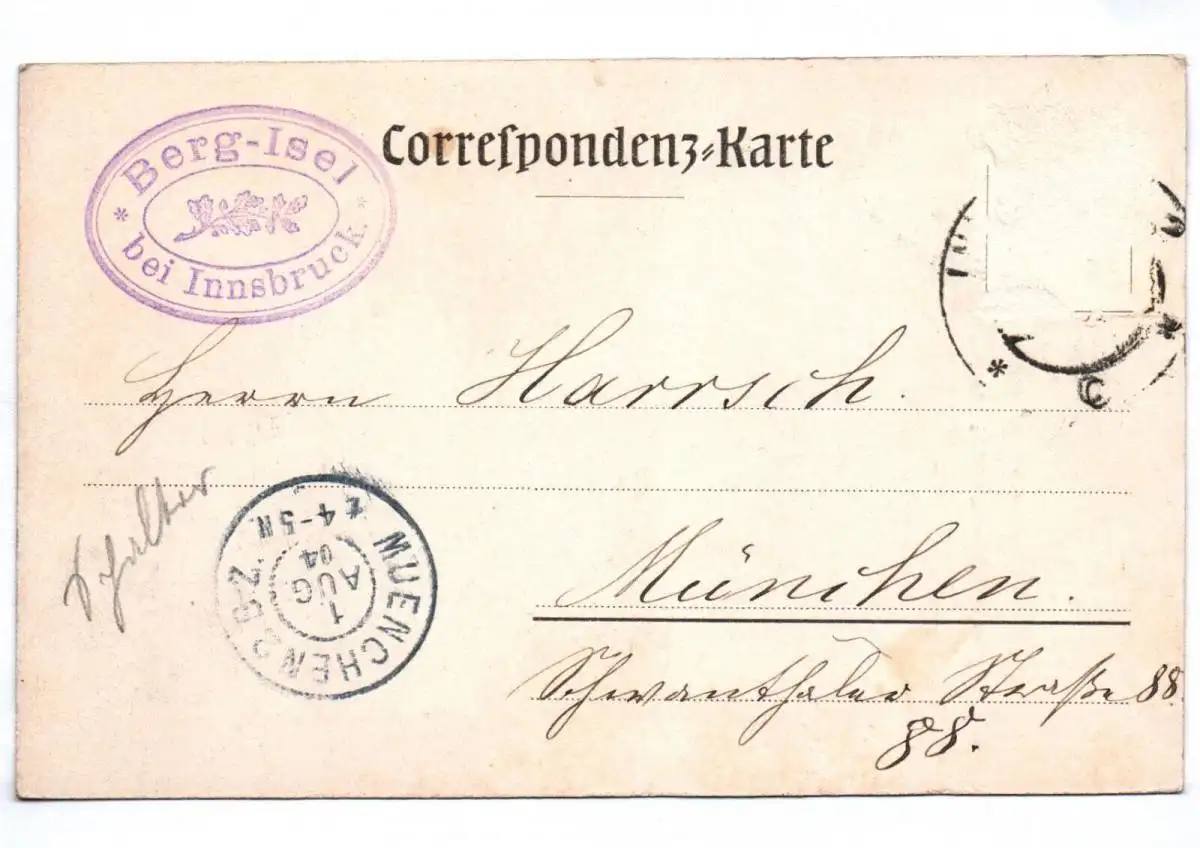 Berg-Isel
* bei Innsbruck. *
Correſpondenz-Karte
Herrn Harrsch.
Schalter
München.
Schwanthaler Straße 88
88.
MUENCHEN 2 B.Z.
1
AUG
04
4-5 N